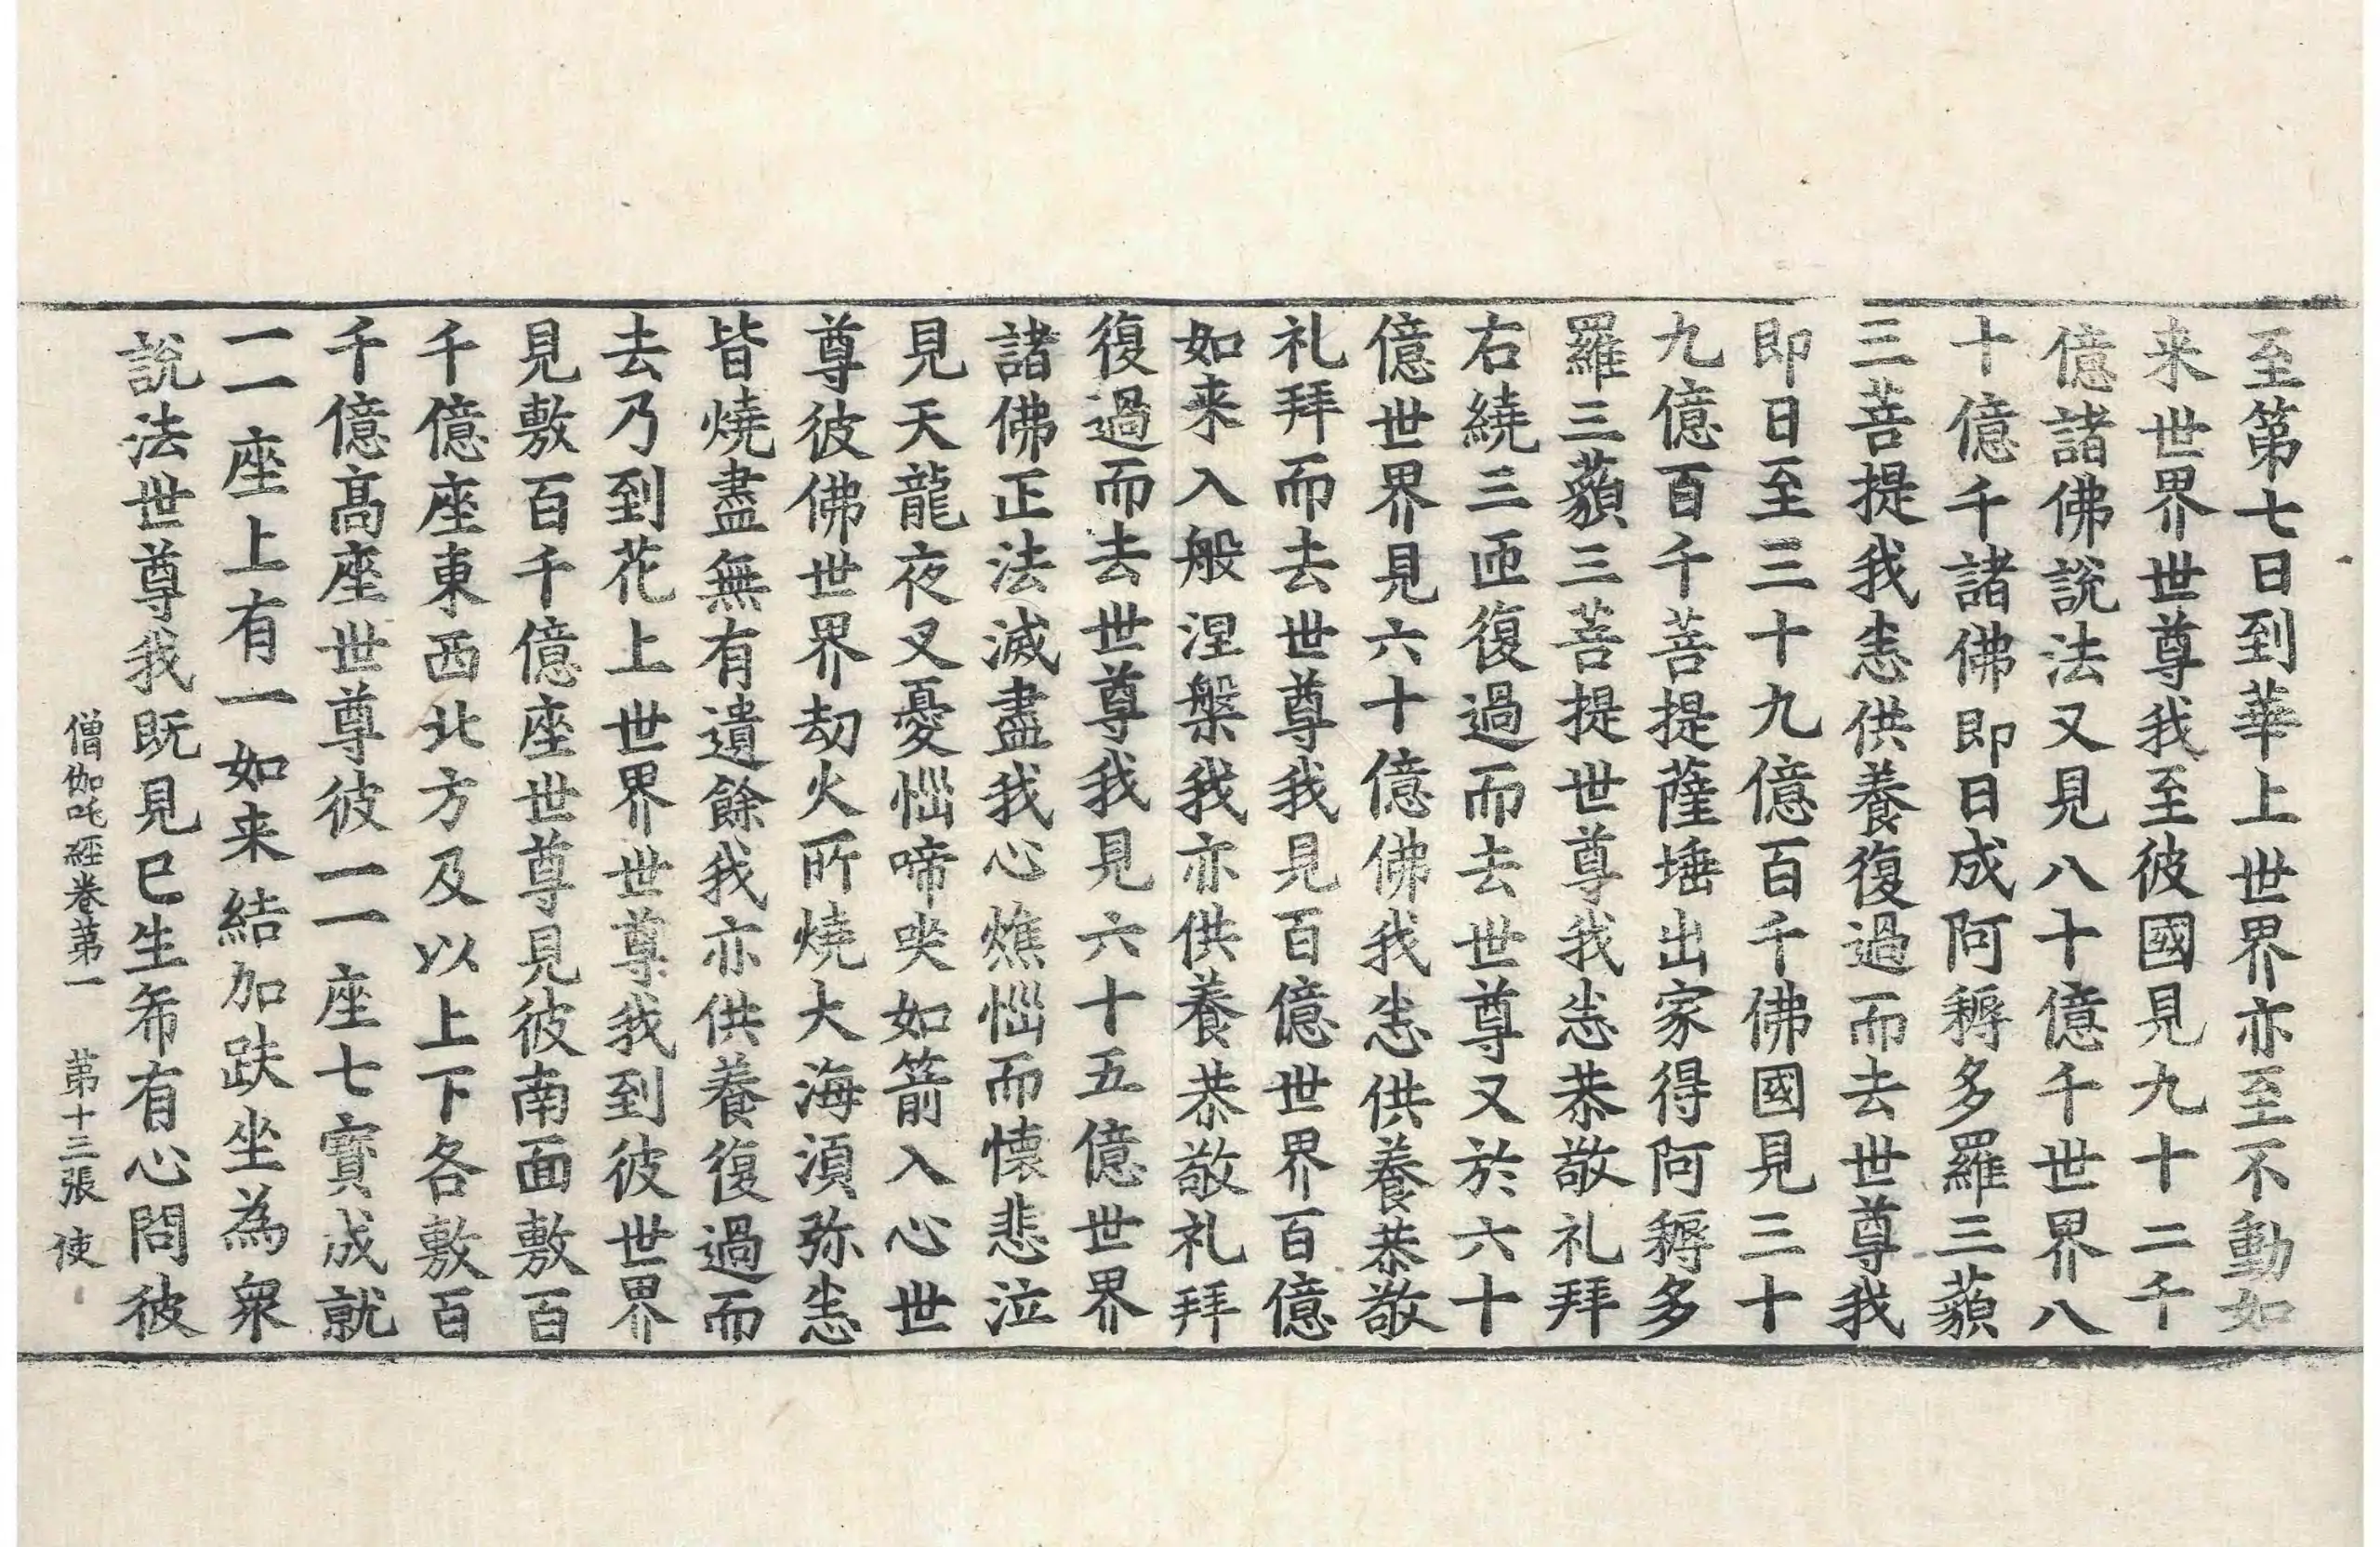 至第七日到華上世界亦至不動如
来世界世尊我至彼國見九十二千
億諸佛說法又見八十億千世界八
十億千諸佛即日成阿耨多羅三藐
三菩提我恚供養復過而去世尊我
即日至三十九億百千佛國見三十
九億百千菩提薩埵出家得阿耨多
羅三藐三菩提世尊我恚恭敬礼拜
右繞三匝復過而去世尊又於六十
億世界見六十億佛我恚供養恭敬
礼拜而去世尊我見百億世界百億
如来入般涅槃我亦供養恭敬礼拜
復過而去世尊我見六十五億世界
諸佛正法滅盡我心燋惱而懷悲泣
見天龍夜叉憂惱啼哭如箭入心世
尊彼佛世界劫火所燒大海須弥恚
皆燒盡無有遺餘我亦供養復過而
去乃到花上世界世尊我到彼世界
見敷百千億座世尊見彼南面敷百
千億座東西北方及以上下各敷百
千億高座世尊彼一一座七寶成就
一一座上有一如来結加趺坐為衆
說法世尊我既見已生希有心問彼
僧伽吒經卷第一　第十三張　使